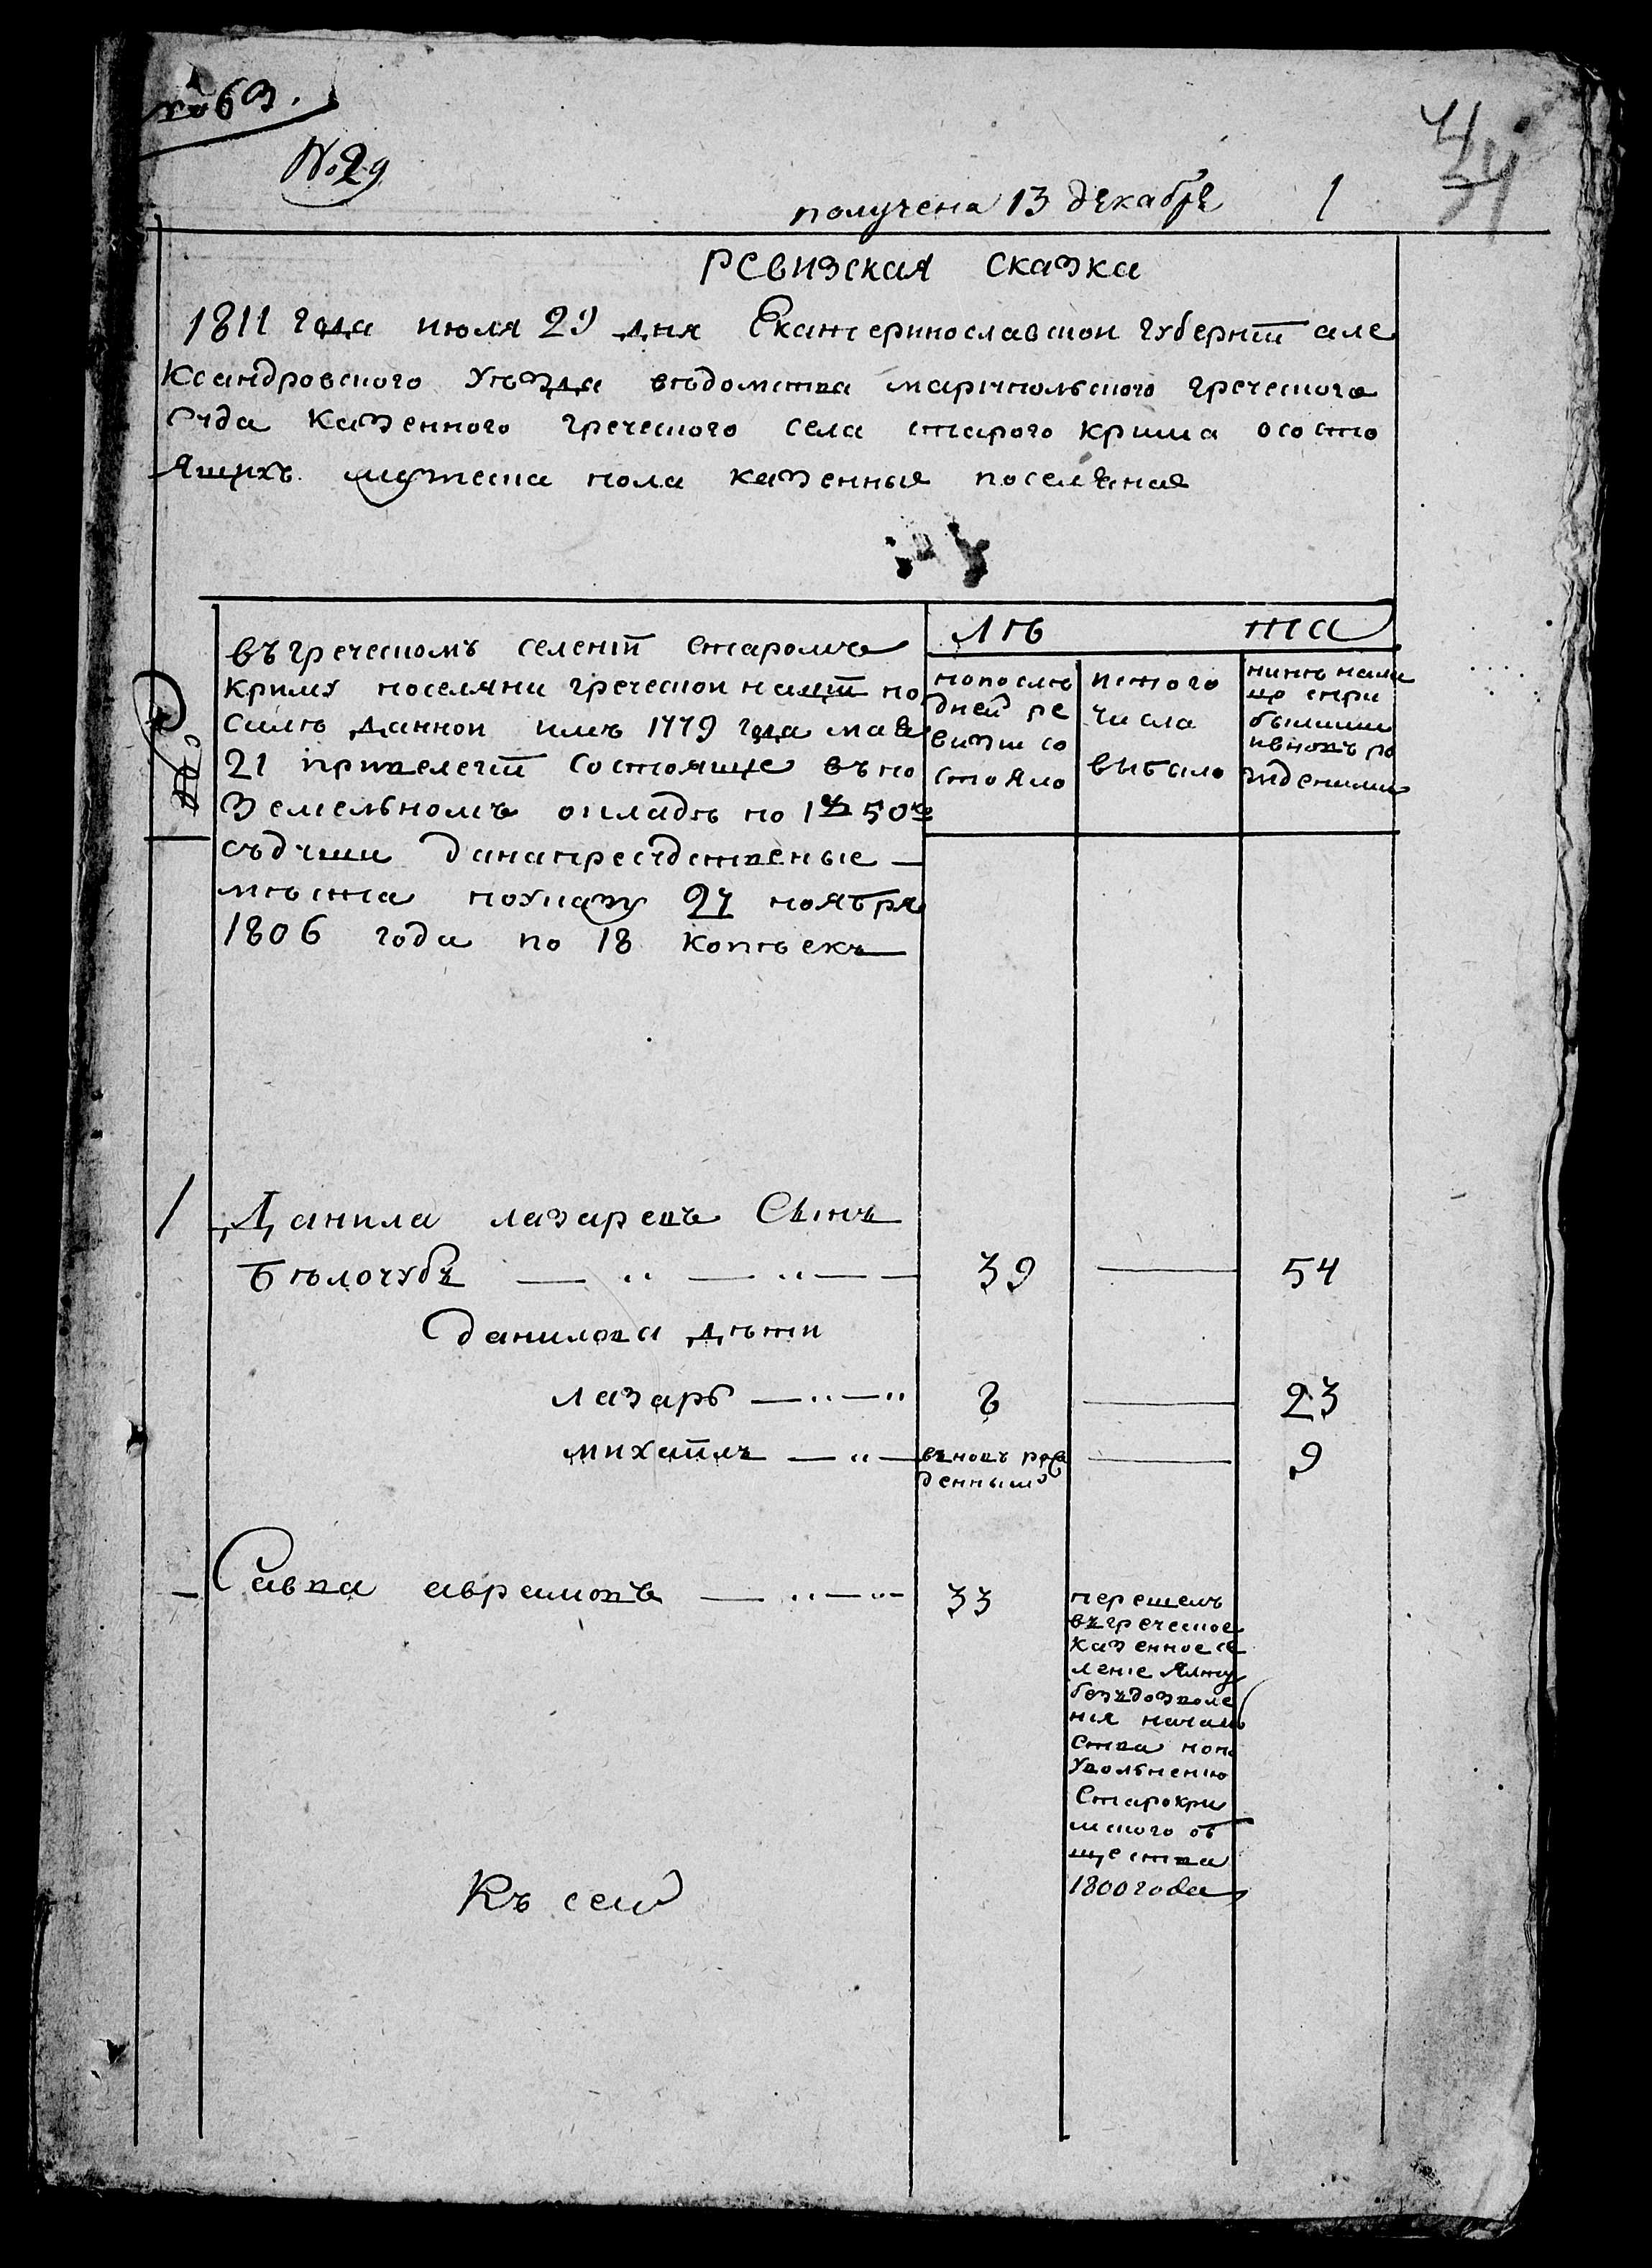 № 63.
№ 29
получена 13 декабре 1
РЕВИЗСКАЯ сказка
1811 года июля 29 дня Екатеринославскои губерніи але
Ксандровского Уѣзда вѣдомства маріупольского греческого
суда казенного греческого села старого крима осостo
Ящихъ мужеска пола казенные поселяная
№
въ греческомъ селеніи старому
криму поселяни греческои націи по
силѣ даннои имъ 1779 года мая
21 привелегіи состояще въ по
Земельномъ окладѣ по 1 50
съдуши
мѣста поуказу 27 ноября
1806 года по 18 копѣекъ
Лѣ та
попослѣ
дней ре
визіи со
стояло
истого
числа
выбило
нинѣ нали
цо спри
былими
ивновъ ро
жденими
1 Данила лазаревъ Сынъ
Бѣлочубъ 39 — 54
Данилова дѣти
лазарь 8 — 23
михаилъ вновъ рож
денныи — 9
— Савва аврамовъ 33
перешелъ
въ греческое
казенное се
леніе Ялту
безъдозволе
нія началь
ства попо
Увольненію
Старокри
мского об
щества
1800 года
Къ сеи